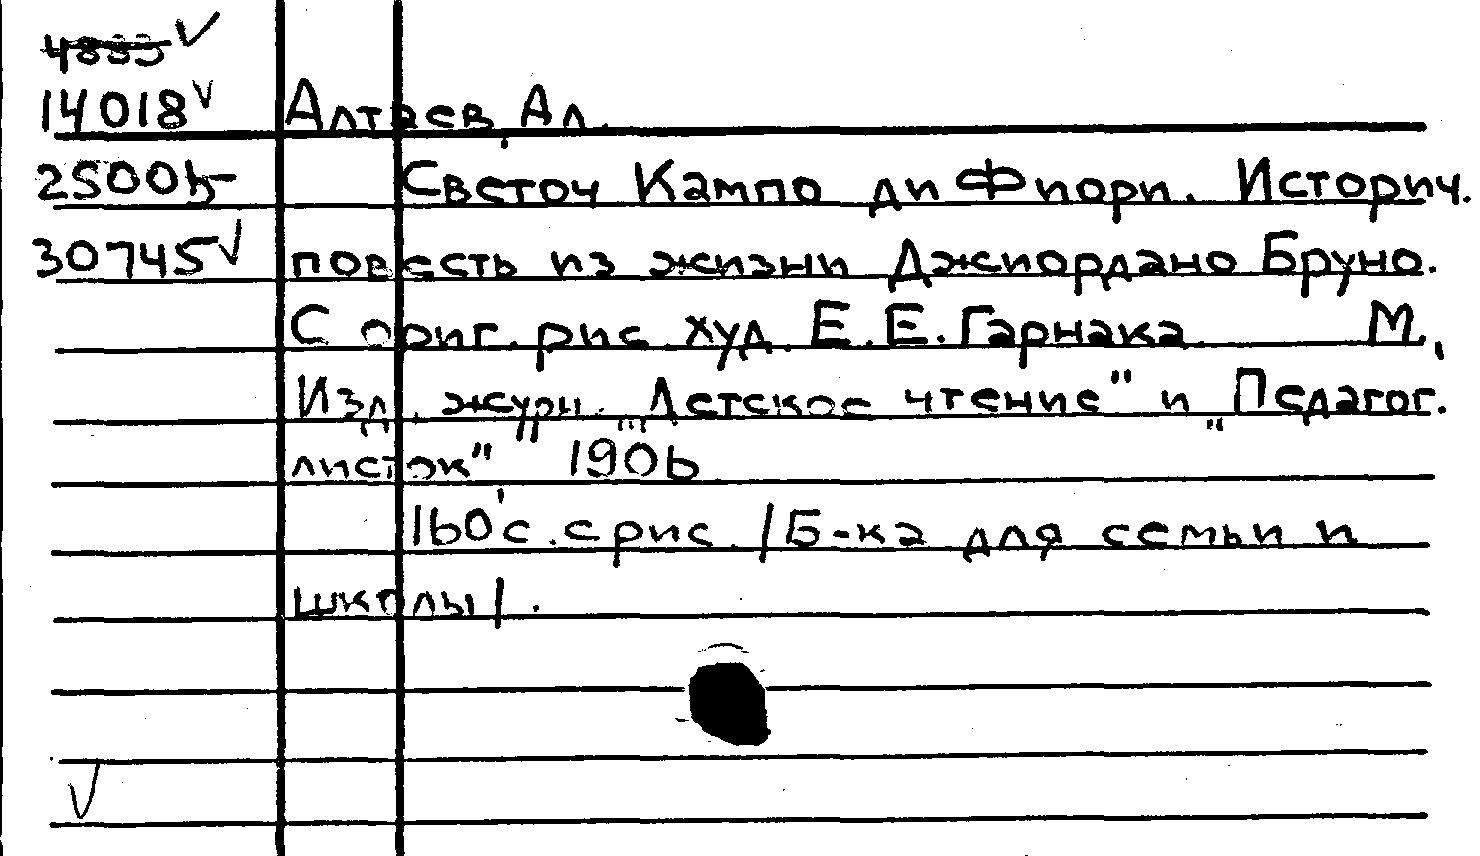 14018 Алтаев, Ал.
25005 Светоч Кампо ди Фиори. Историч.
30745 повесть из жизни Джиордано Бруно.
С ориг. рис. худ. Е. Е. Гарнака. М.,
Изд. журн. „Детское чтение" и „Педагог.
листок" 1906
160 с. с рис. /Б-ка для семьи и
школы/.